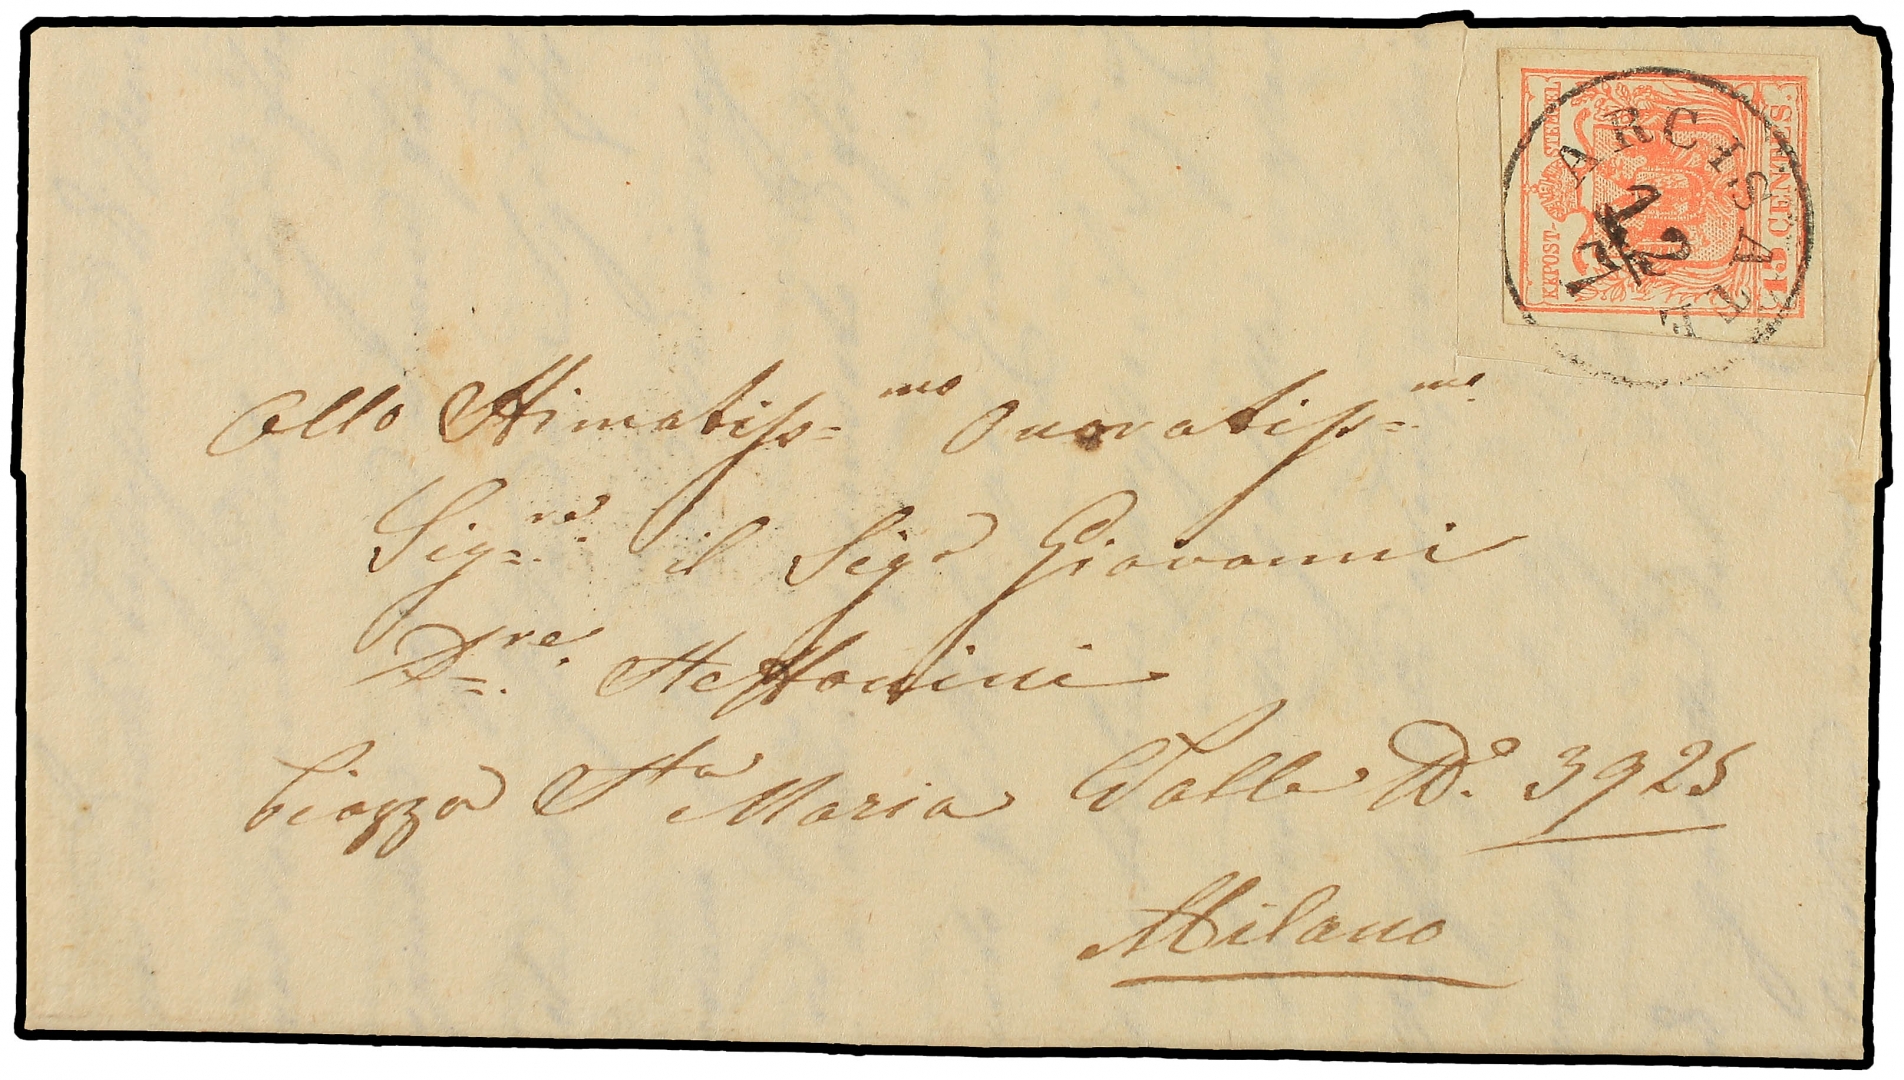 KKPOST-STEMPEL
15 CENTES.
ARCISATE
12
Allo Stimatiss=mo Onoratiss=mo
Sig=re il Sigr Giovanni
D=re
Piazza Sta Maria Valle No. 3925
Milano